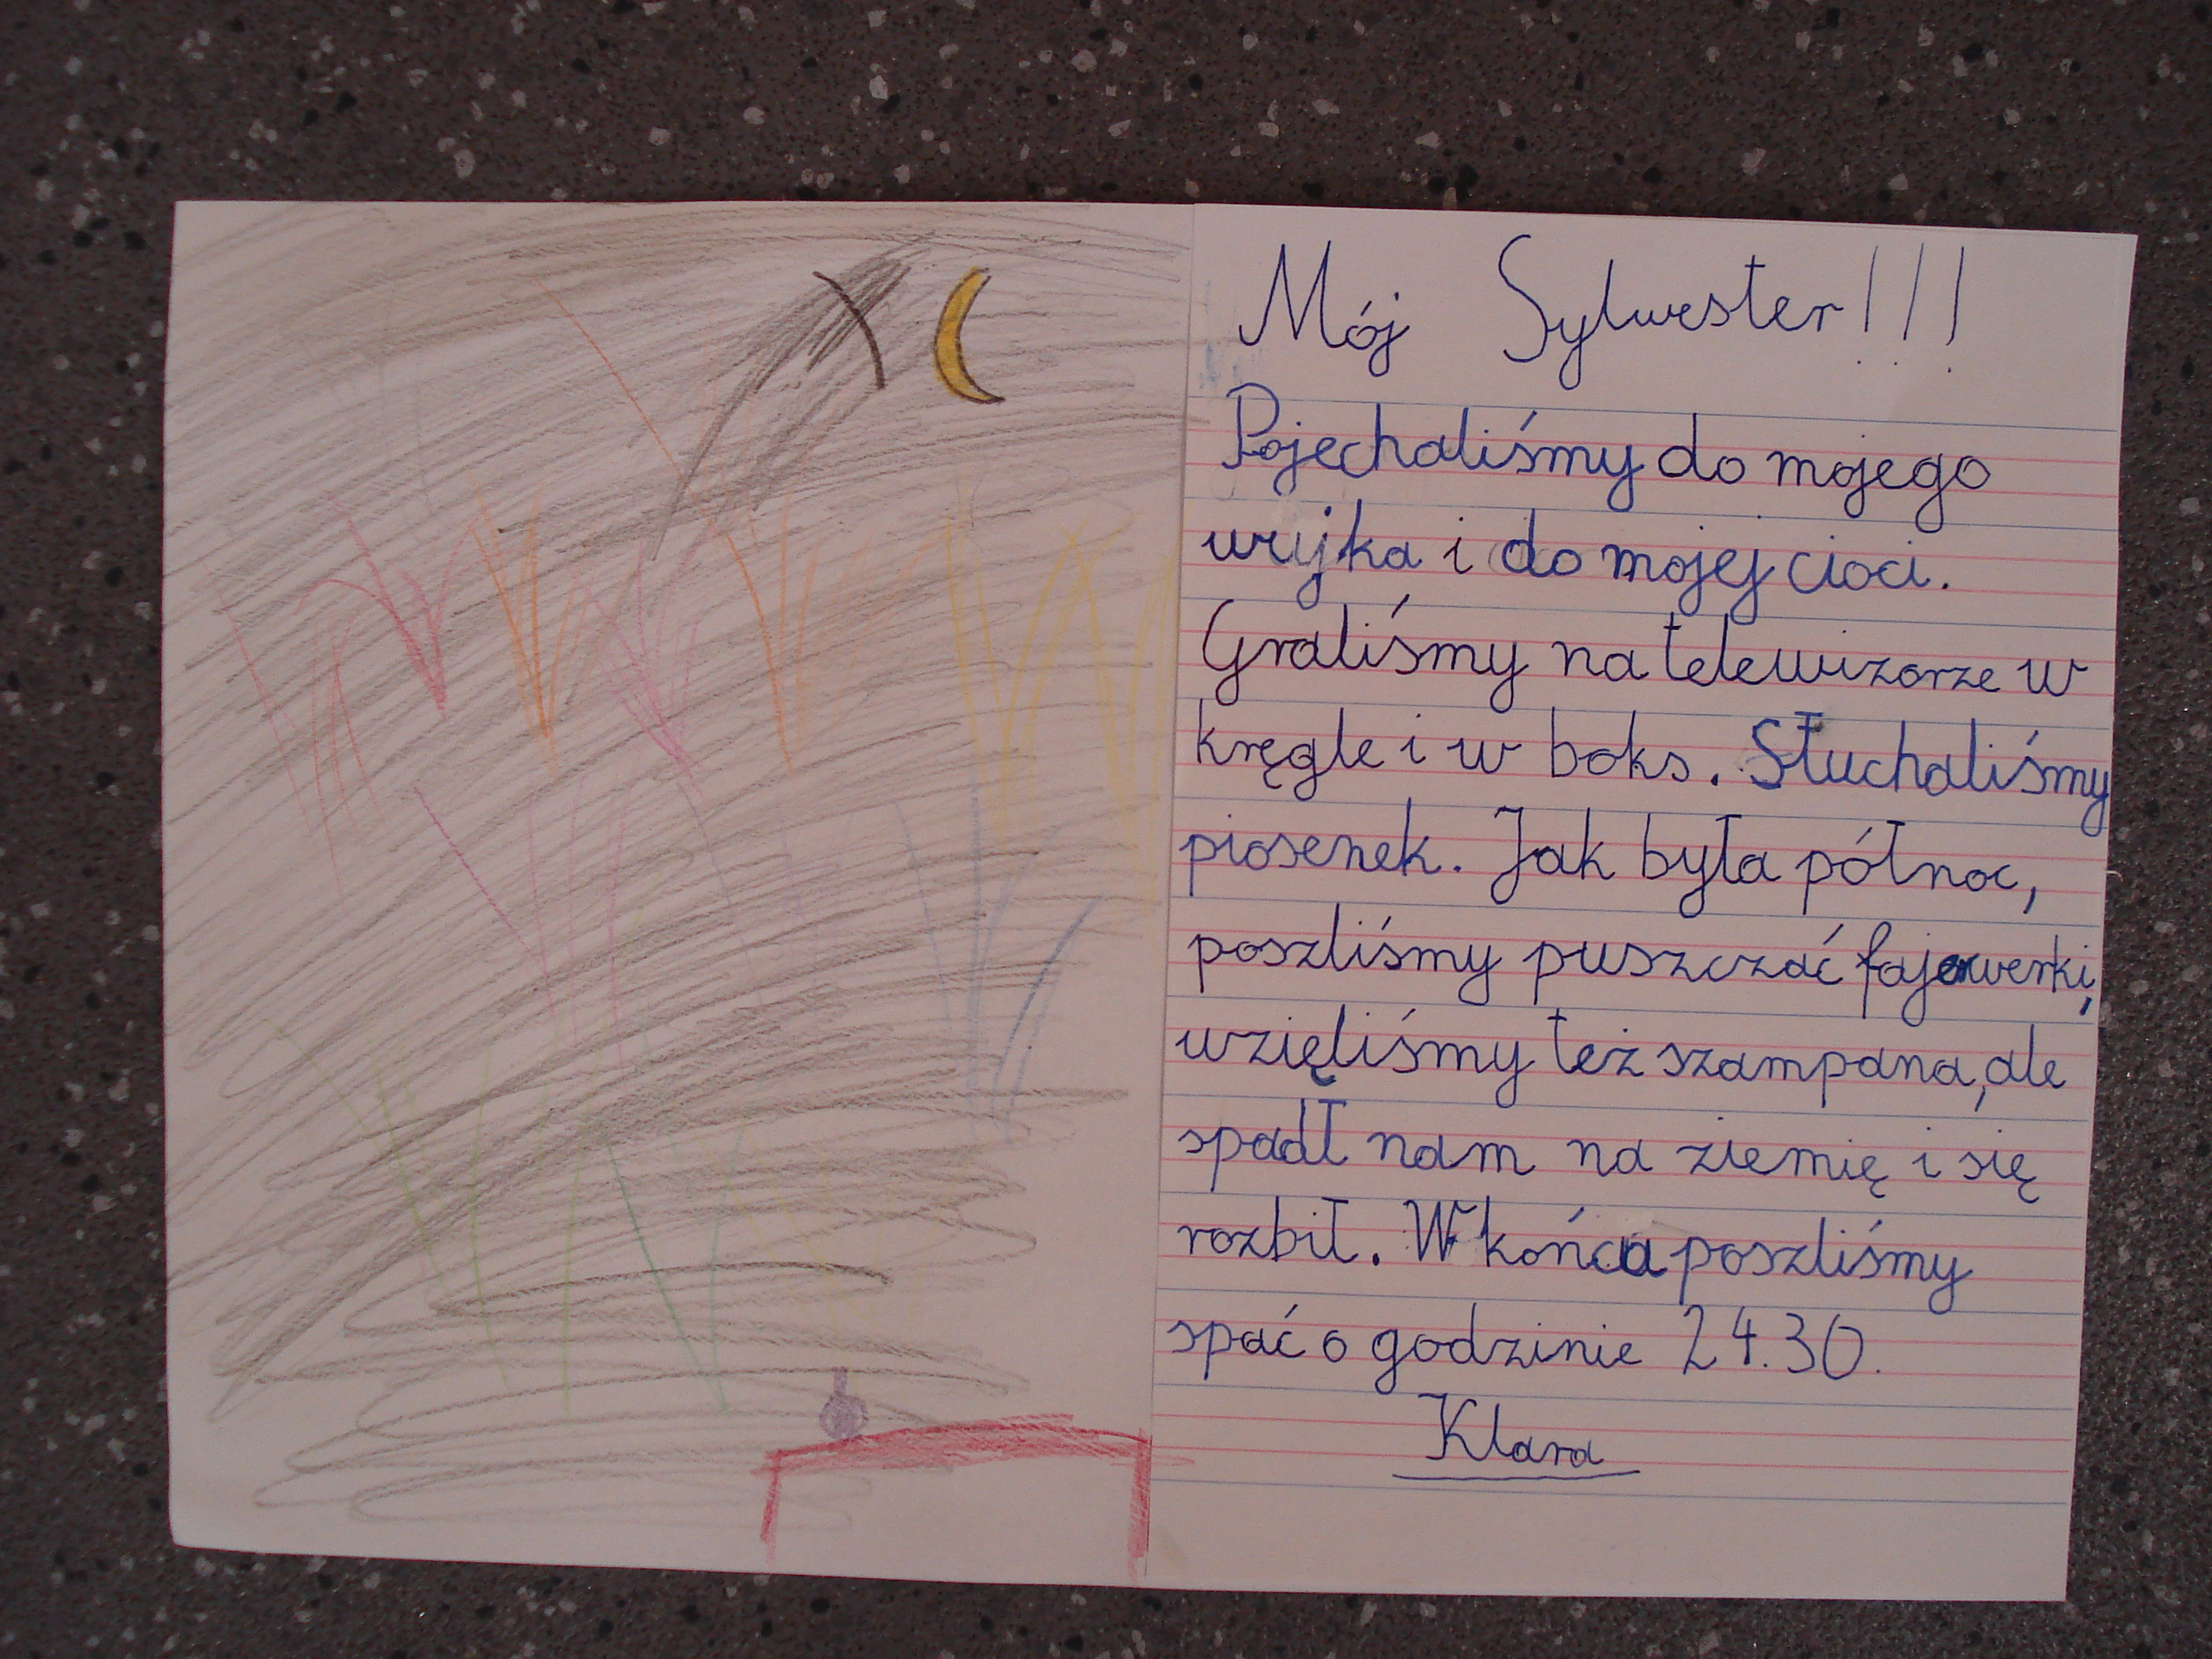 Mój Sylwester!!!
Pojechaliśmy do mojego
wujka i do mojej cioci.
Graliśmy na telewizorze w
kręgle i w boks. Słuchaliśmy
piosenek. Jak była północ,
poszliśmy puszczać fajerwerki,
wzięliśmy też szampana, ale
spadł nam na ziemię i się
rozbił. W końcu poszliśmy
spać o godzinie 24.30.
Klara